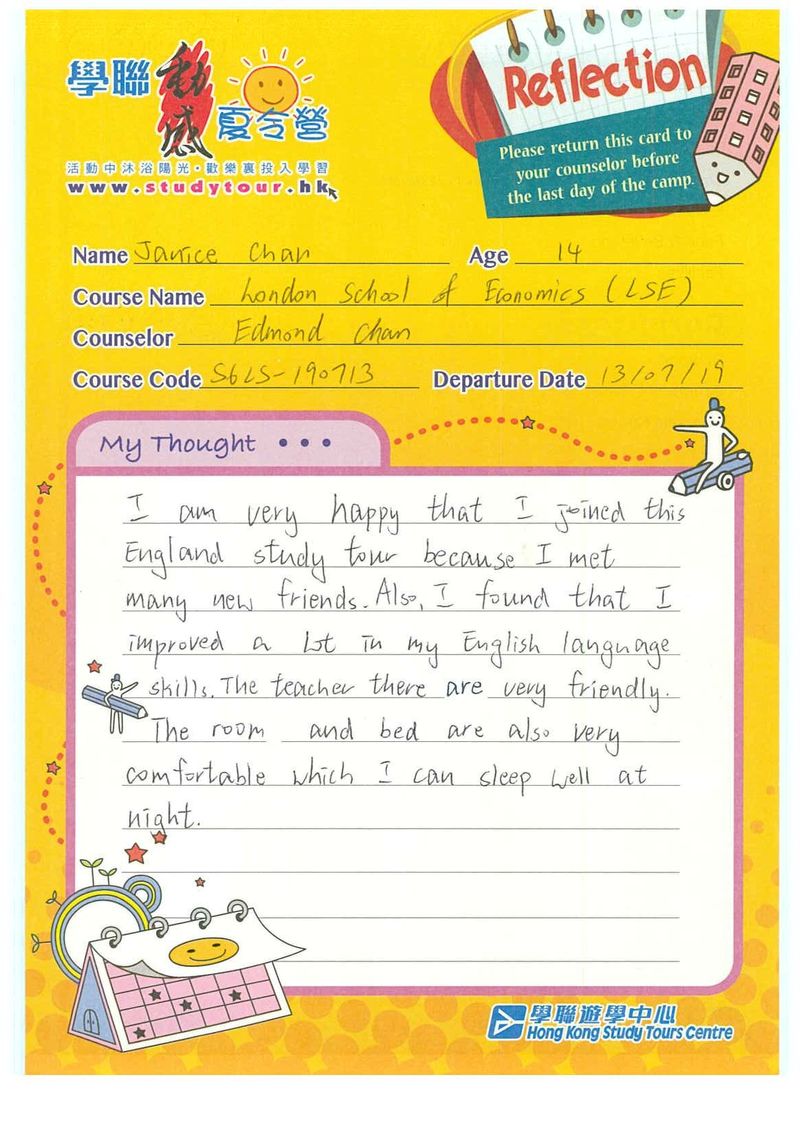 學聯 動感 夏令營
活動中沐浴陽光·歡樂裏投入學習
www.studytour.hk
Reflection
Please return this card to
your counselor before
the last day of the camp.
Name Janice Chan Age 14
Course Name London School of Economics (LSE)
Counselor Edmond Chan
Course Code S6LS-190713 Departure Date 13/07/19
My Thought • • •
I am very happy that I joined this
England study tour because I met
many new friends. Also, I found that I
improved a lot in my English language
skills. The teacher there are very friendly.
The room and bed are also very
comfortable which I can sleep well at
night.
學聯遊學中心
Hong Kong Study Tours Centre